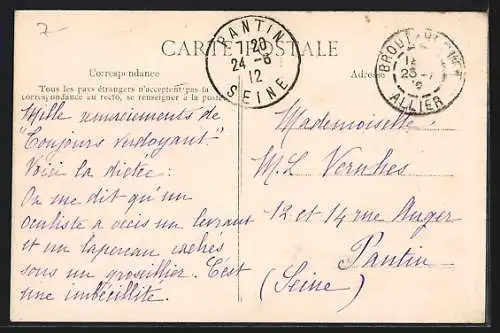 7-
CARTE POSTALE
PANTIN
7/20
24-6
12
SEINE
BROUT
ALLIER
Correspondance
Tous les pays étrangers n'acceptent pas la
correspondance au recto, se renseigner à la poste
Mille remerciements de
"Toujours verdoyant".
Voici la dictée :
On me dit qu'un
oculiste a occis un levraut
et un lapereau cachés
sous un groseillier. C'est
une imbécillité.
Mademoiselle
M. L. Vernhes
12 et 14 rue Auger
Pantin
(Seine)